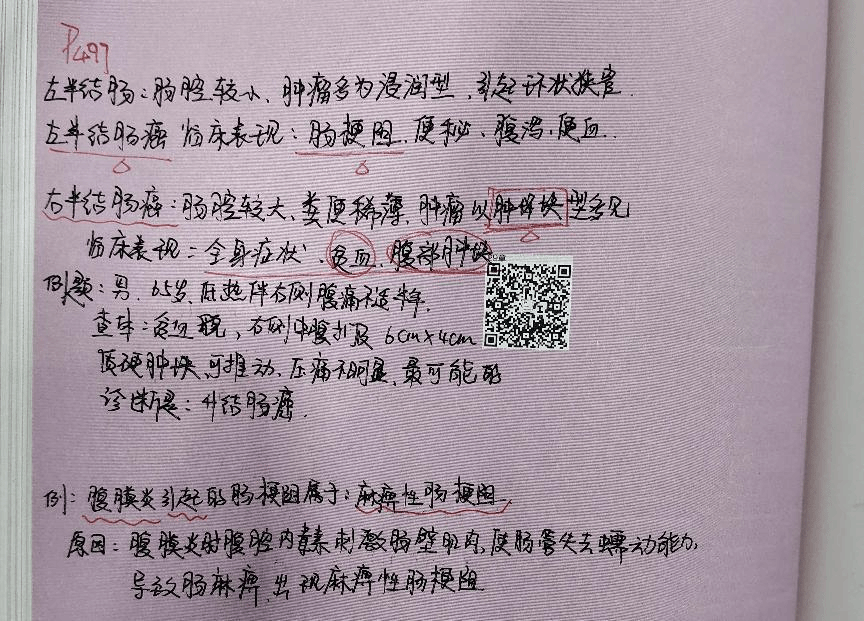 P497
左半结肠：肠腔较小、肿瘤多为浸润型，引起环状狭窄
左半结肠癌 临床表现：肠梗阻、便秘、腹泻、便血
右半结肠癌：肠腔较大、粪便稀薄，肿瘤以肿块型多见
临床表现：全身症状、贫血、腹部肿块
例题：男，65岁，低热伴右侧腹痛不适半年，
查体：贫血貌，右侧中腹扪及 6cm×4cm
质硬肿块，可推动、压痛不明显，最可能的
诊断是：升结肠癌
例：腹膜炎引起的肠梗阻属于：麻痹性肠梗阻
原因：腹膜炎时腹腔内毒素刺激肠壁肌肉，使肠管失去蠕动能力，
导致肠麻痹，出现麻痹性肠梗阻